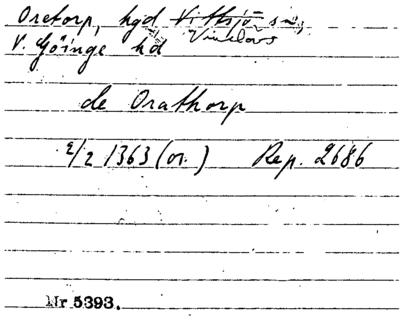 Oretorp, hgd Vittsjö sn,
Vinslövs
V. Göinge hd
de Orathorp
2/2 1363 (or.) Rep. 2686
Nr 5393.